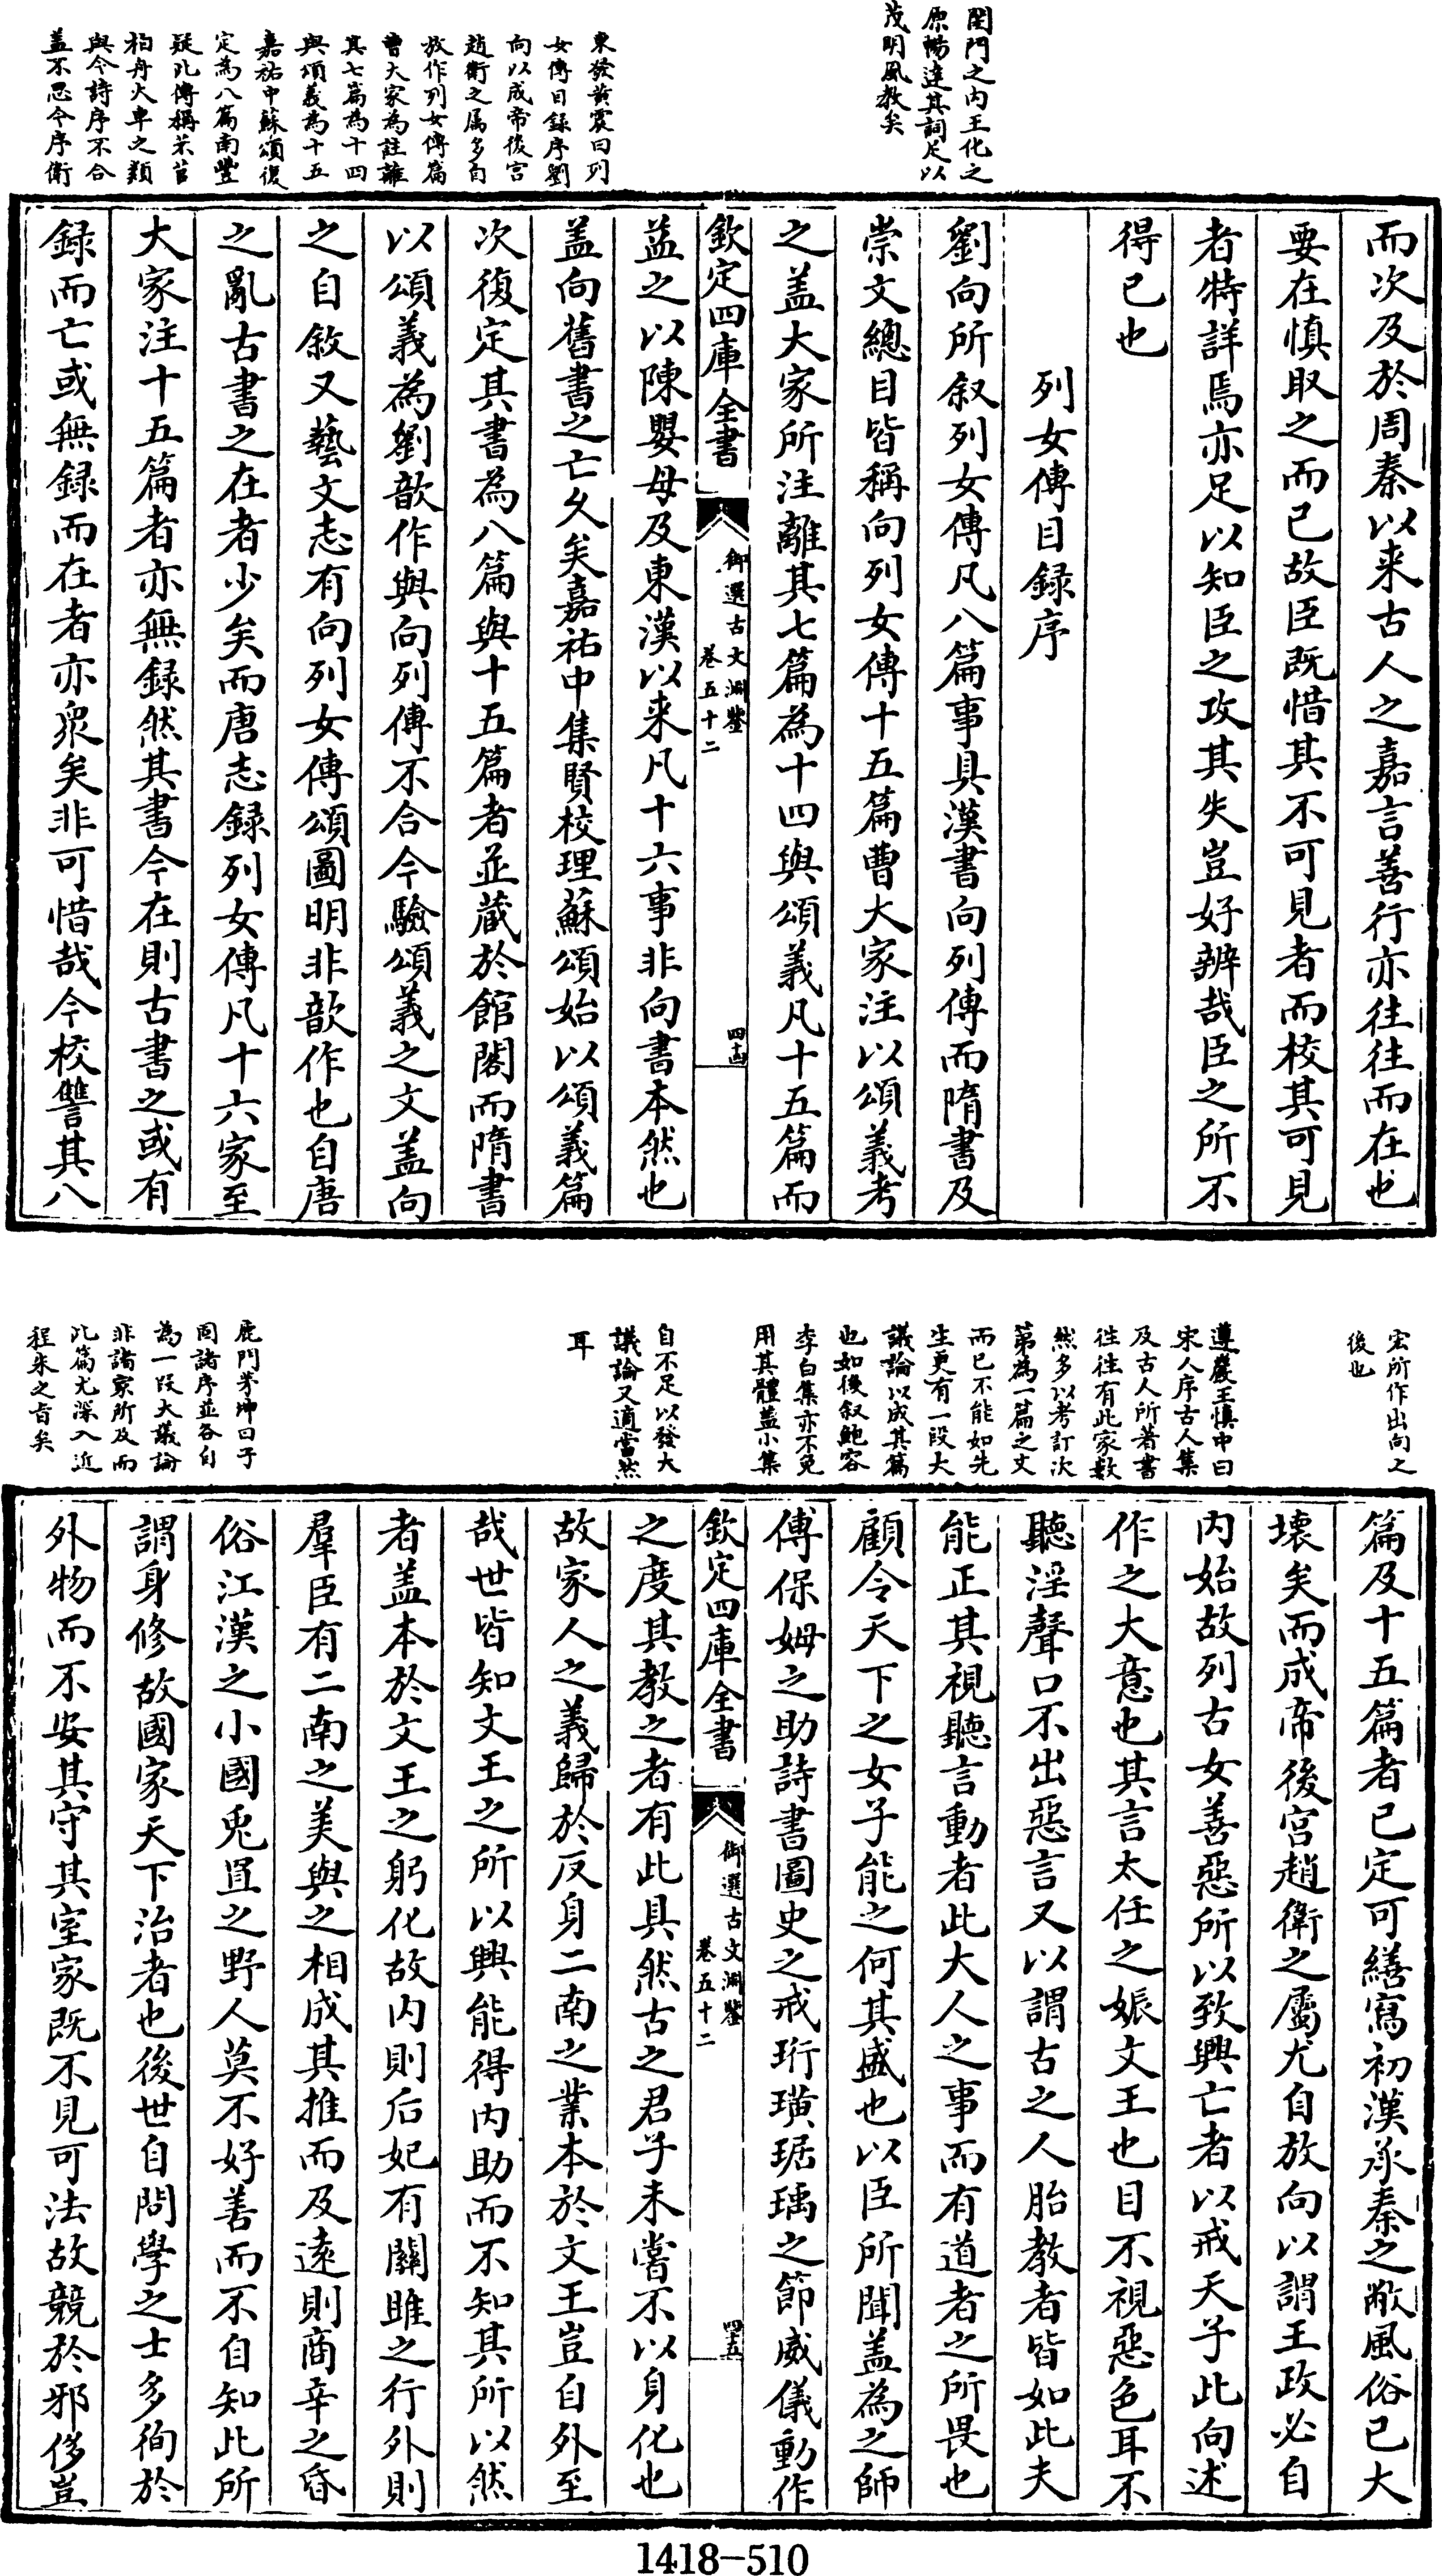 閨門之内王化之
原暢達其詞足以
茂明風教矣
東發黄震曰列
女傳目録序劉
向以成帝後宫
趙衛之屬多自
放作列女傳篇
曹大家為註離
其七篇為十四
與頌義為十五
嘉祐中蘇頌復
定為八篇南豐
疑此傳稱芣苢
柏舟大車之類
與今詩序不合
蓋不思今序衛
而次及於周秦以来古人之嘉言善行亦往往而在也
要在慎取之而已故臣既惜其不可見者而校其可見
者特詳焉亦足以知臣之攻其失豈好辨哉臣之所不
得已也
列女傳目録序
劉向所叙列女傳凡八篇事具漢書向列傳而隋書及
崇文總目皆稱向列女傳十五篇曹大家注以頌義考
之盖大家所注離其七篇為十四與頌義凡十五篇而
欽定四庫全書
御選古文淵鑒
卷五十二
四十四
益之以陳嬰母及東漢以来凡十六事非向書本然也
盖向舊書之亡久矣嘉祐中集賢校理蘇頌始以頌義篇
次復定其書為八篇與十五篇者並藏於館閣而隋書
以頌義為劉歆作與向列傳不合今驗頌義之文盖向
之自敘又藝文志有向列女傳頌圖明非歆作也自唐
之亂古書之在者少矣而唐志録列女傳凡十六家至
大家注十五篇者亦無録然其書今在則古書之或有
録而亡或無録而在者亦衆矣非可惜哉今校讐其八
宏所作出向之
後也
遵巖王慎中曰
宋人序古人集
及古人所著書
往往有此家數
然多以考訂次
第為一篇之文
而已不能如先
生更有一段大
議論以成其篇
也如後叙鮑容
李白集亦不免
用其體蓋小集
自不足以發大
議論又適當然
耳
鹿門茅坤曰子
固諸序並各自
為一段大議論
非諸家所及而
此篇尤深入近
程朱之旨矣
篇及十五篇者已定可繕寫初漢承秦之敝風俗已大
壊矣而成帝後宫趙衛之屬尤自放向以謂王政必自
内始故列古女善惡所以致興亡者以戒天子此向述
作之大意也其言太任之娠文王也目不視惡色耳不
聽淫聲口不出惡言又以謂古之人胎教者皆如此夫
能正其視聽言動者此大人之事而有道者之所畏也
顧令天下之女子能之何其盛也以臣所聞盖為之師
傅保姆之助詩書圖史之戒珩璜琚瑀之節威儀動作
欽定四庫全書
御選古文淵鑒
卷五十二
四十五
之度其教之者有此具然古之君子未嘗不以身化也
故家人之義歸於反身二南之業本於文王豈自外至
哉世皆知文王之所以興能得内助而不知其所以然
者盖本於文王之躬化故内則后妃有關雎之行外則
羣臣有二南之美與之相成其推而及遠則商辛之昏
俗江漢之小國兎罝之野人莫不好善而不自知此所
謂身修故國家天下治者也後世自問學之士多徇於
外物而不安其守其室家既不見可法故競於邪侈豈
1418-510